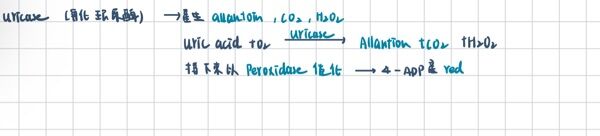 uricase (催化玨尿酶) → 產生 allantoin , CO₂ , H₂O₂
uric acid + O₂ —uricase→ Allantion + CO₂ + H₂O₂
接下來以 Peroxidase 催化 → 4-App 產 red